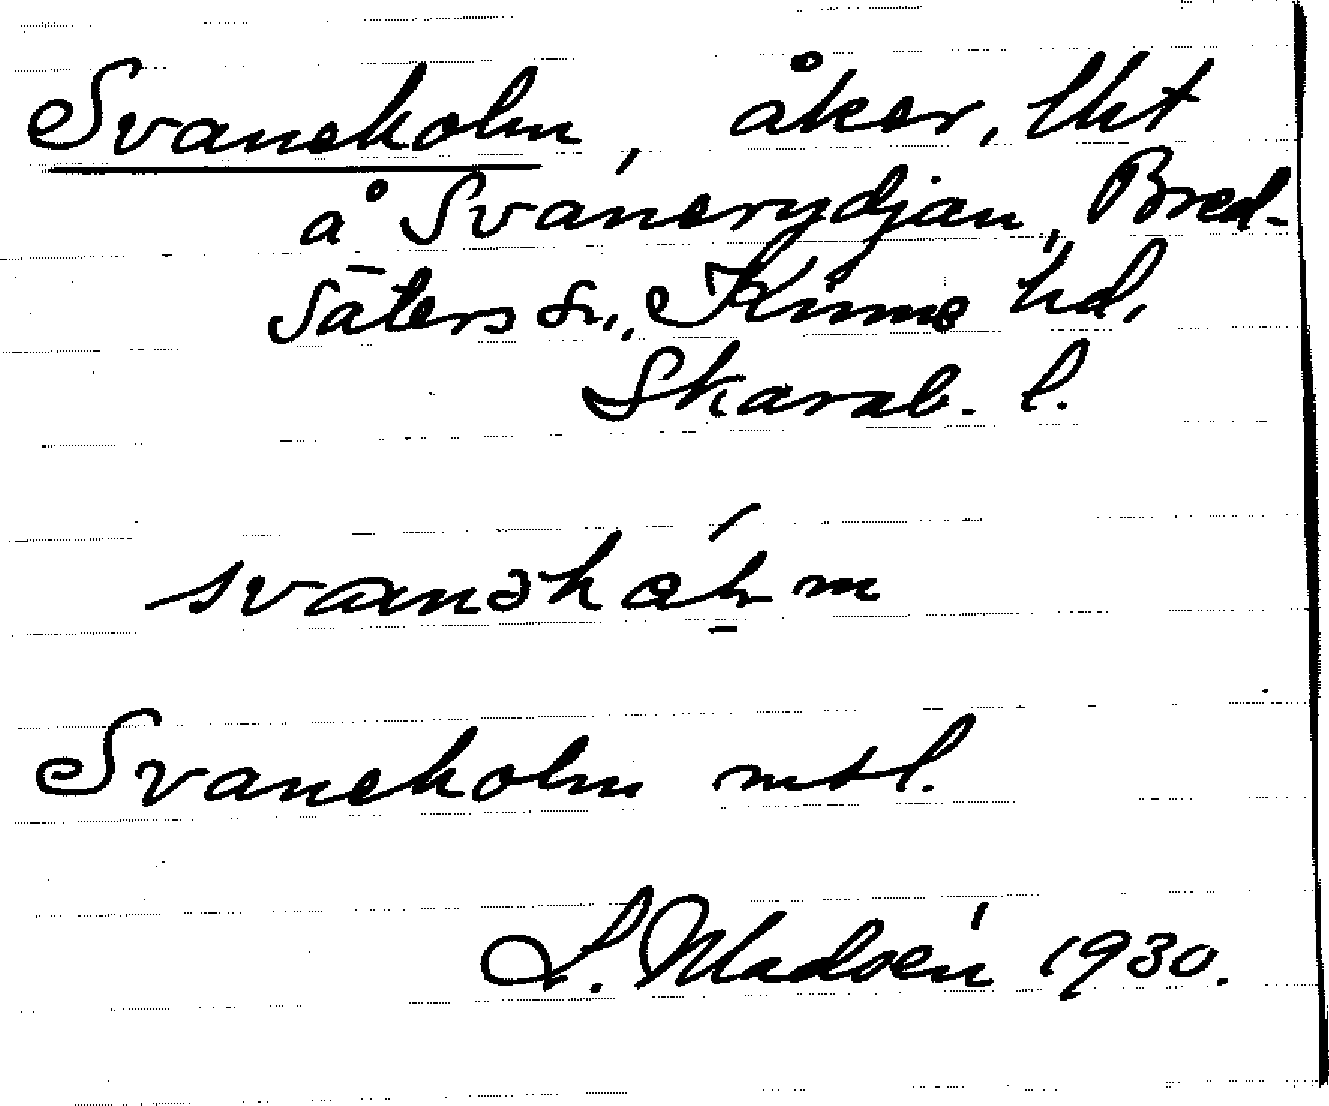 Svaneholm, åker, tkt
å Svanerydjan, Bred-
säters sn., Kinne hd,
Skarab. l.
svanəhólm
Svaneholm mtl.
L. Madsén 1930.